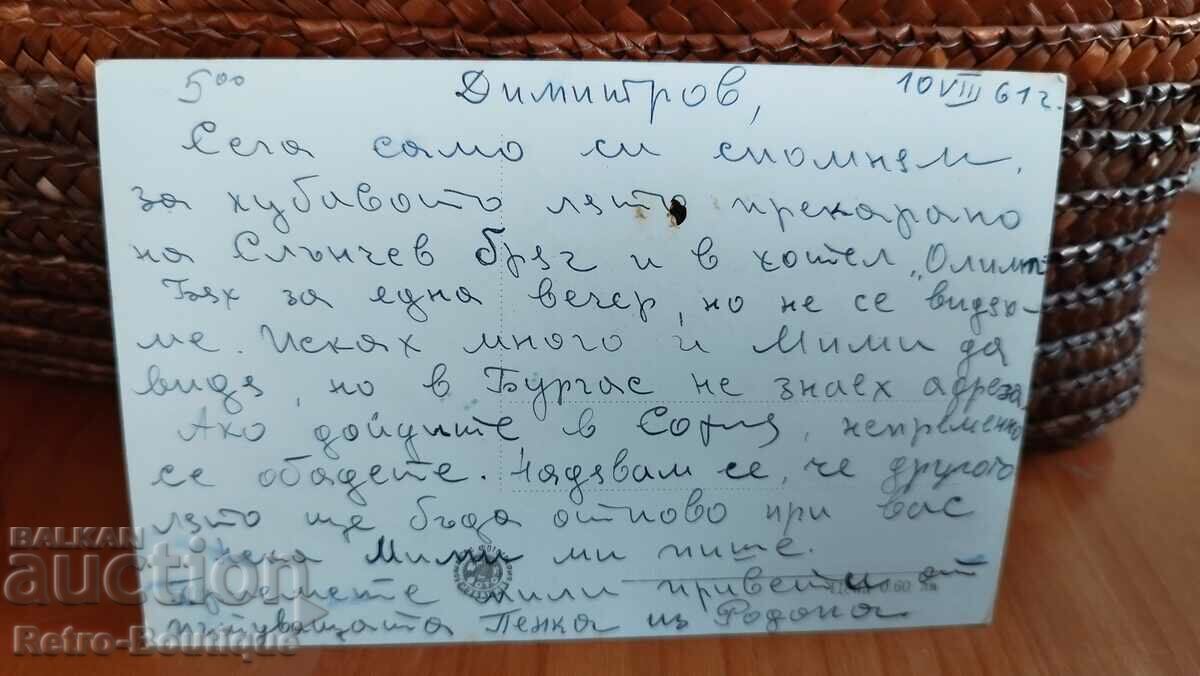 5⁰⁰ Димитров, 10 VIII 61 г.
Сега само си спомням,
за хубавото лято прекарано
на Слънчев бряг и в хотел „Олимп"
Бях за една вечер, но не се видях-
ме. Исках много и Мими да
видя, но в Бургас не знаех адреза.
Ако дойдите в София, непременно
се обадете. Надявам се, че другото
лято ще бъда отново при вас
Нека Мими ми пише.
Приемете мили привети от
пътуващата Пенка из Родопа.
0.60 лв
BALKAN
auction
Retro-Boutique